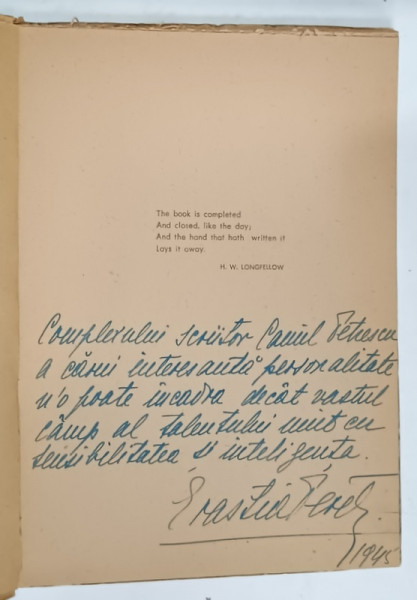 The book is completed
And closed, like the day;
And the hand that hath written it
Lays it away.
H. W. LONGFELLOW
Complexului scriitor Camil Petrescu
a cărui interesantă personalitate
n'o poate încadra decât vastul
câmp al talentului unit cu
sensibilitatea și inteligența.
Erastia Peretz.
1945